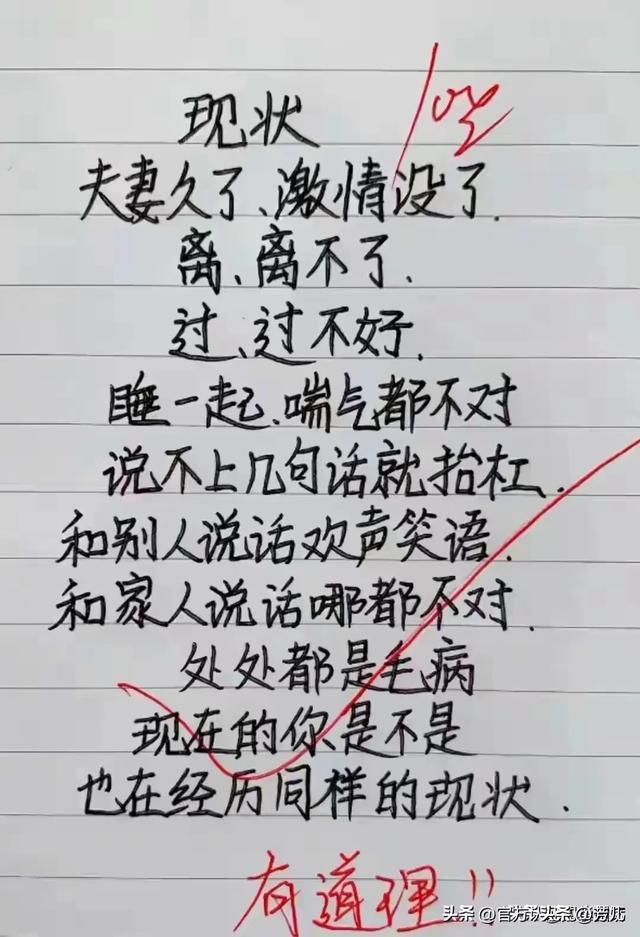 现状
100
夫妻久了、激情没了.
离、离不了.
过、过不好.
睡一起、喘气都不对
说不上几句话就抬杠.
和别人说话欢声笑语.
和家人说话哪都不对.
处处都是毛病
现在的你是不是
也在经历同样的现状.
有道理!!
头条 @